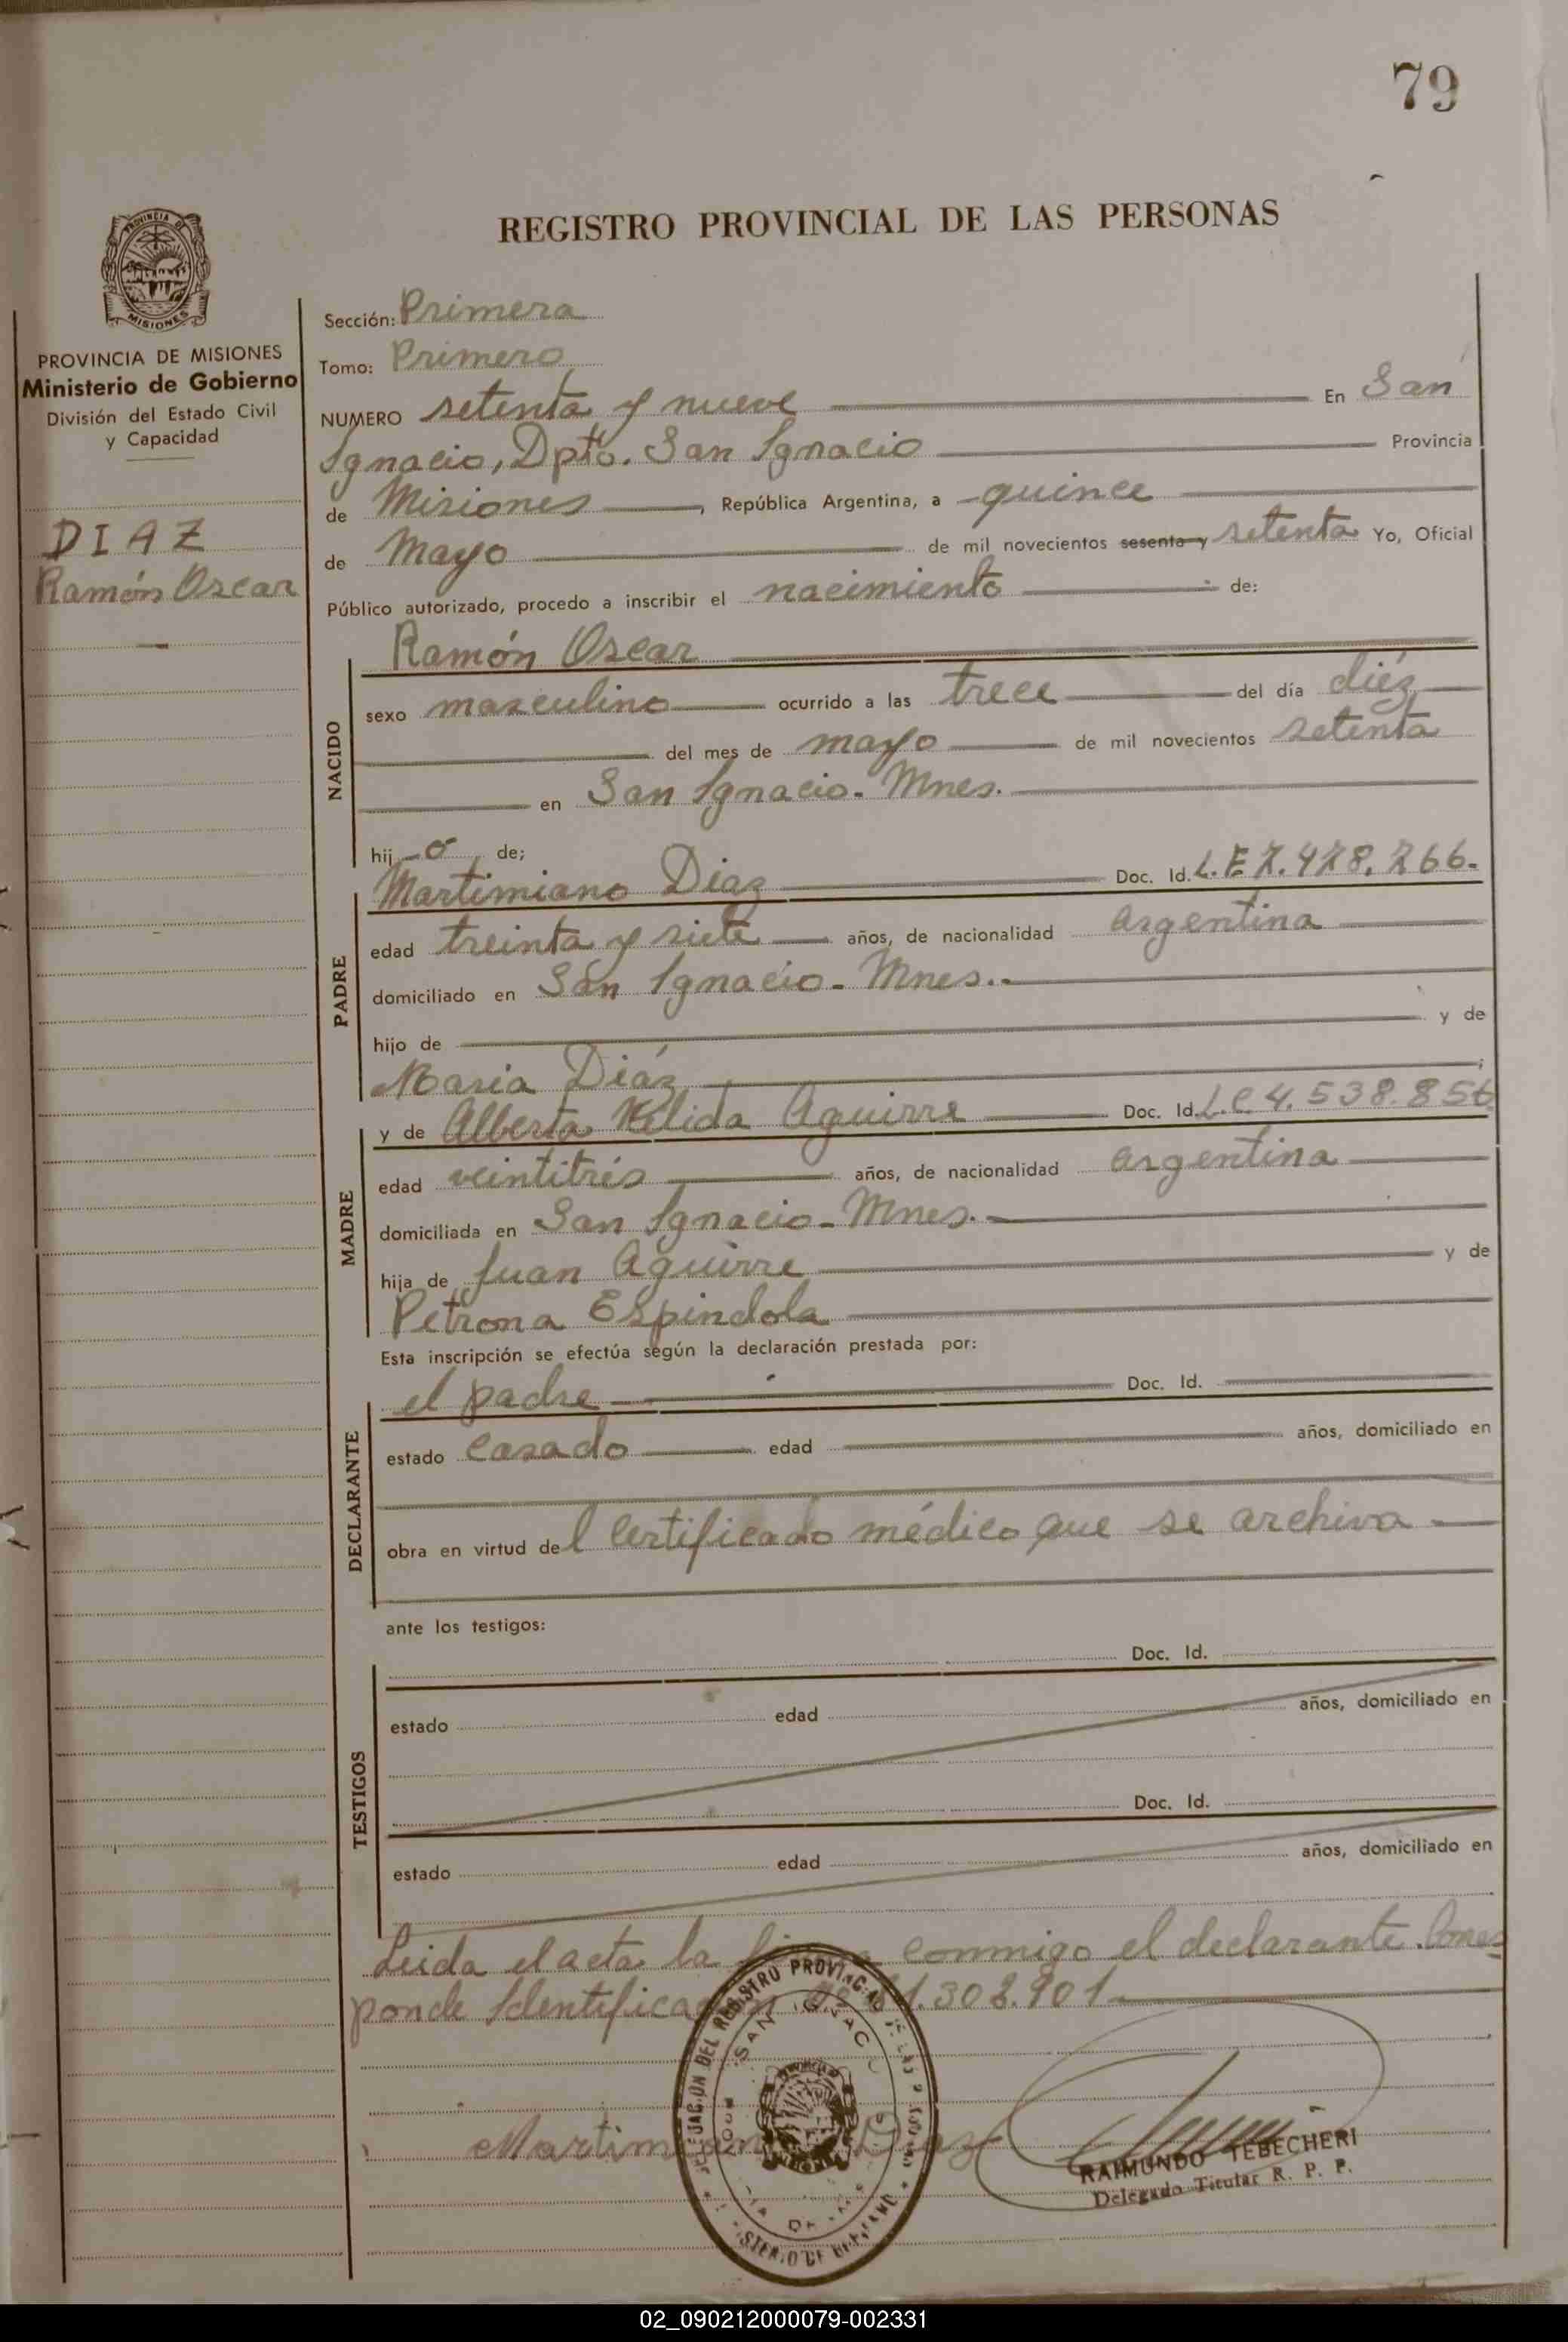 79
REGISTRO PROVINCIAL DE LAS PERSONAS
PROVINCIA DE
MISIONES
PROVINCIA DE MISIONES
Ministerio de Gobierno
División del Estado Civil
y Capacidad
DIAZ
Ramón Oscar
Sección: Primera
Tomo: Primero
NUMERO setenta y nueve En San
Ignacio, Dpto. San Ignacio Provincia
de Misiones, República Argentina, a quince
de Mayo de mil novecientos sesenta y setenta Yo, Oficial
Público autorizado, procedo a inscribir el nacimiento de:
NACIDO
Ramón Oscar
sexo masculino ocurrido a las trece del día diéz
del mes de mayo de mil novecientos setenta
en San Ignacio - Mnes.
hij o de;
PADRE
Martimiano Diaz Doc. Id. L.E 7.478.766.
edad treinta y siete años, de nacionalidad argentina
domiciliado en San Ignacio - Mnes.
hijo de y de
Maria Diáz
MADRE
y de Alberta Nélida Aguirre Doc. Id. L.C. 4.538.856
edad veintitrés años, de nacionalidad argentina
domiciliada en San Ignacio - Mnes.
hija de Juan Aguirre y de
Petrona Espindola
Esta inscripción se efectúa según la declaración prestada por:
DECLARANTE
el padre Doc. Id.
estado casado edad años, domiciliado en
obra en virtud del certificado médico que se archiva
ante los testigos:
TESTIGOS
Doc. Id.
estado edad años, domiciliado en
Doc. Id.
estado edad años, domiciliado en
Leida el acta la conmigo el declarante. Corres
ponde Identificación .302.901
DELEGACION DEL REGISTRO PROVINCIAL DE LAS PERSONAS
SAN IGNACIO
Martimiano Diaz
RAIMUNDO TEBECHERI
Delegado Titular R. P. P.
02_090212000079-002331